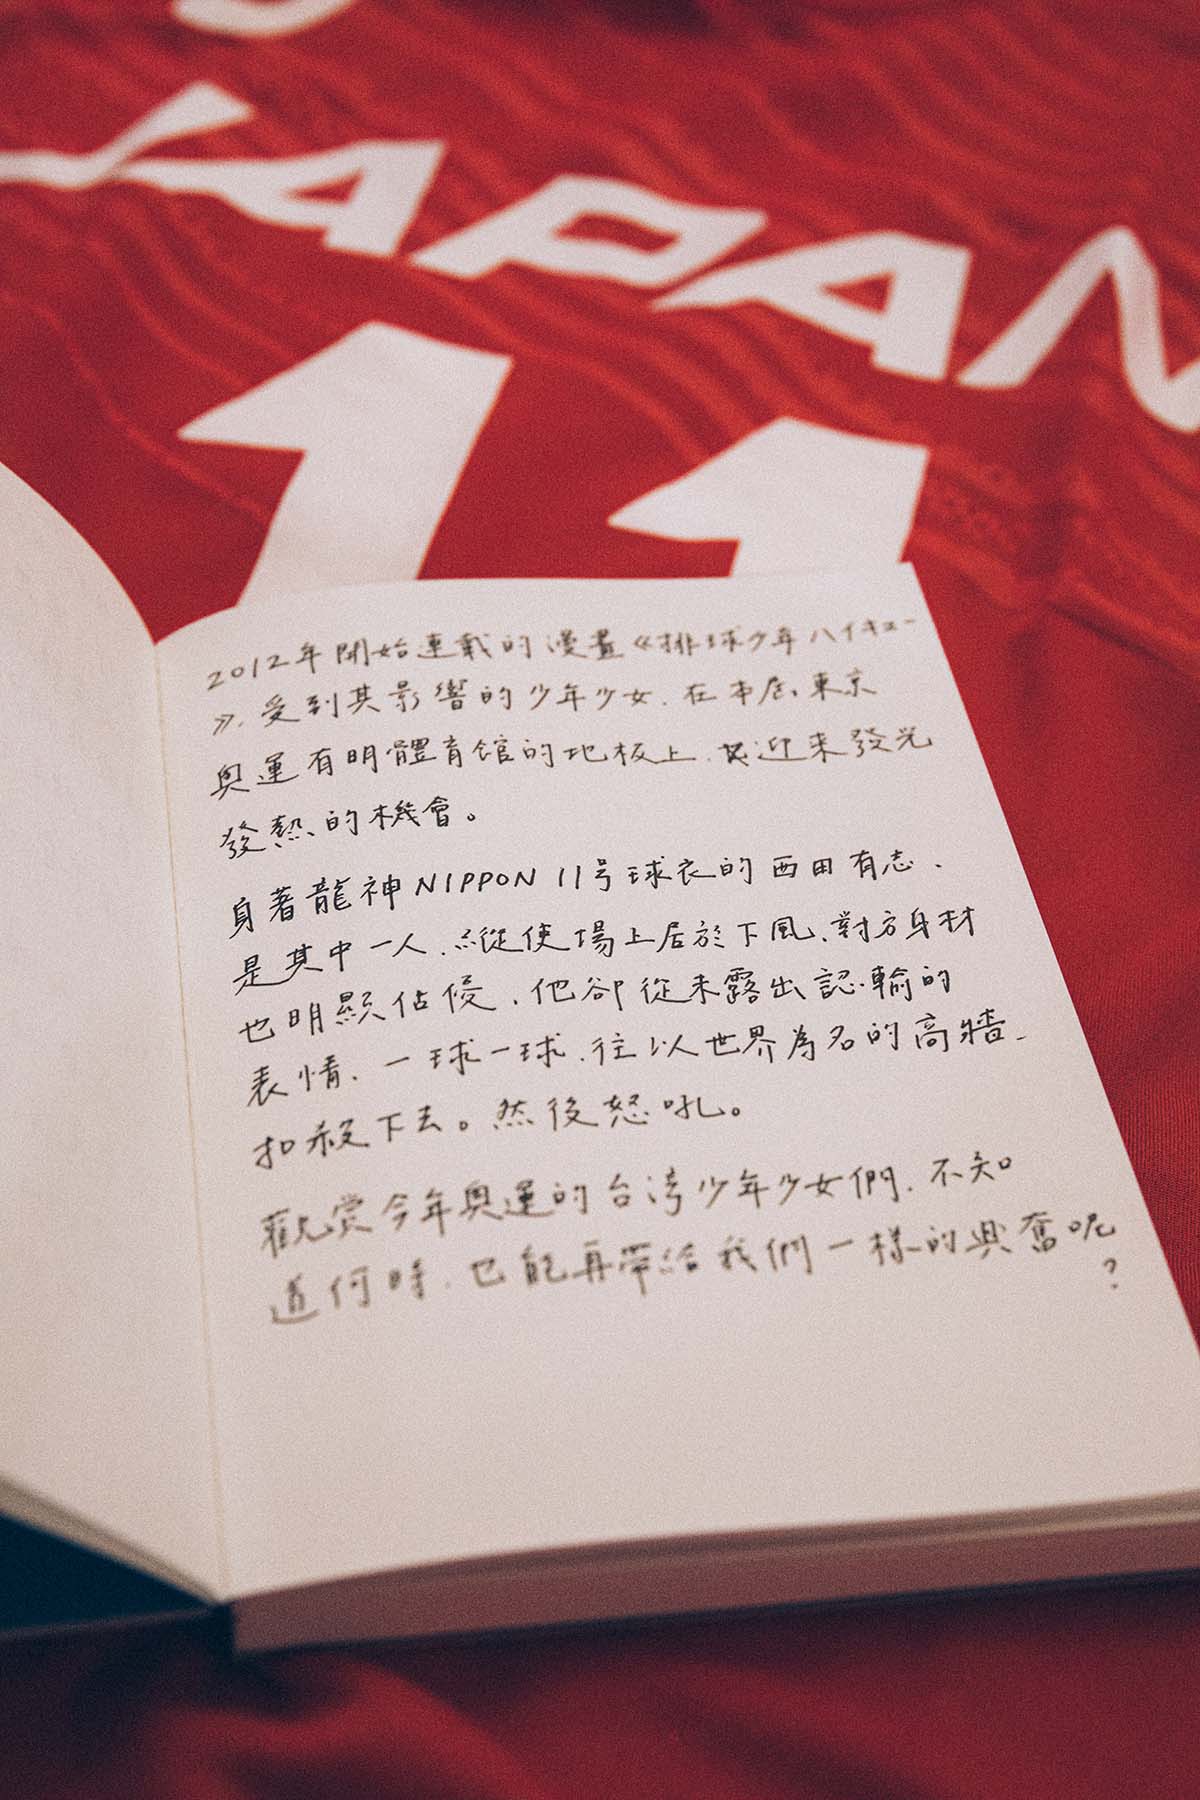 JAPAN
11
2012年開始連載的漫畫《排球少年ハイキュー
》,受到其影響的少年少女,在本屆東京
奧運有明體育馆的地板上,迎來發光
發熱的機會。
身著龍神NIPPON 11号球衣的西田有志、
是其中一人,縱使場上居於下風、對方身材
也明顯佔優,他卻從未露出認輸的
表情、一球一球,往以世界為名的高牆、
扣殺下去。然後怒吼。
觀賞今年奧運的台湾少年少女們,不知
道何時,也能再帶給我們一樣的興奮呢
?